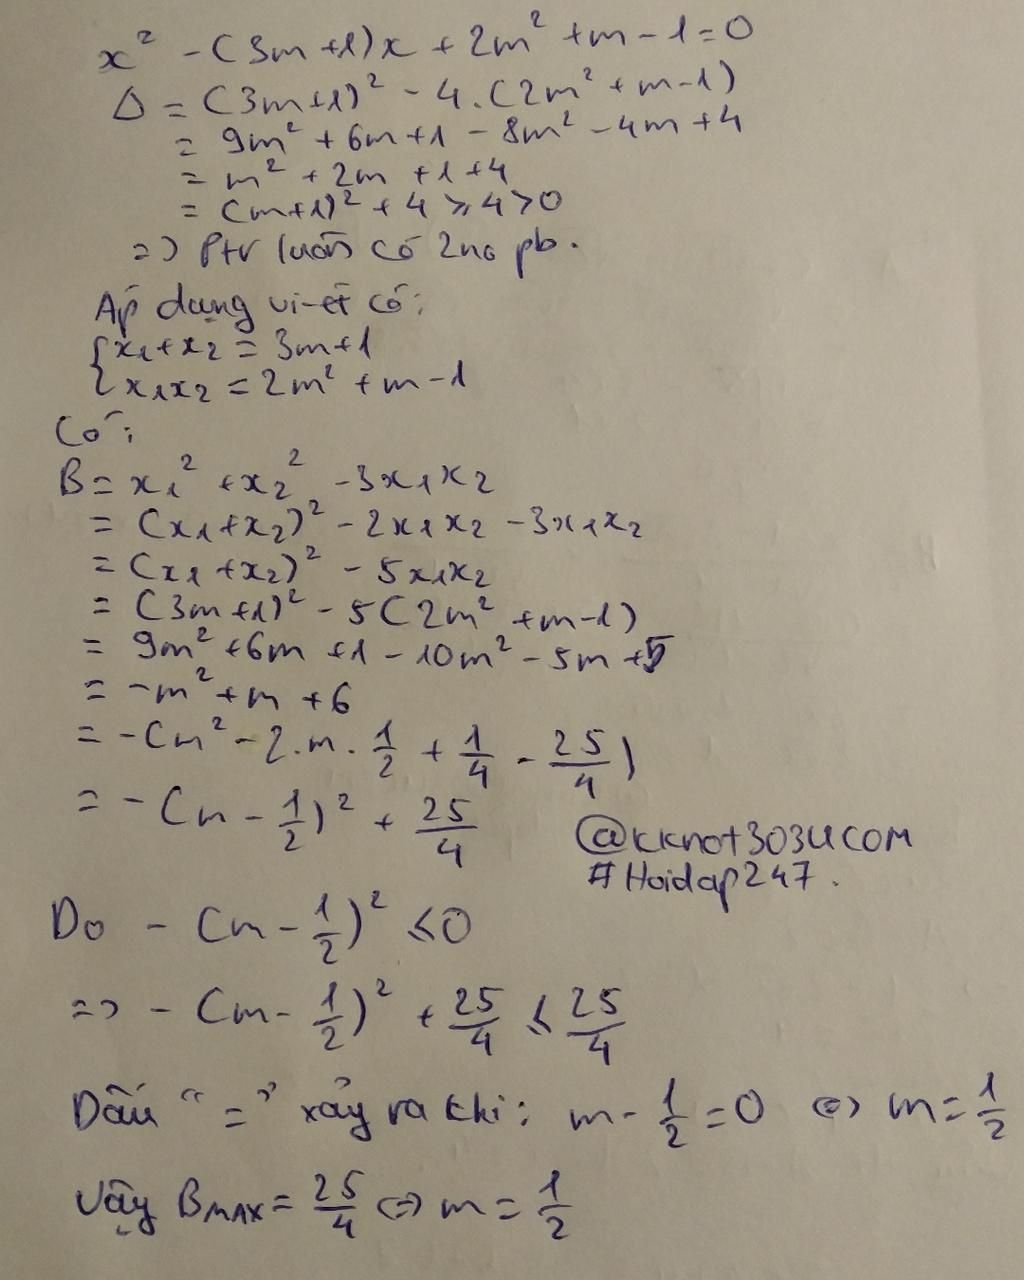 x² - (3m+1)x + 2m² + m - 1 = 0
Δ = (3m+1)² - 4.(2m² + m-1)
= 9m² + 6m + 1 - 8m² - 4m + 4
= m² + 2m + 1 + 4
= (m+1)² + 4 ≥ 4 > 0
=> Ptr luôn có 2no pb.
Áp dụng vi-ét có:
{x₁+x₂ = 3m+1
{x₁x₂ = 2m² + m - 1
Có:
B = x₁² + x₂² - 3x₁x₂
= (x₁+x₂)² - 2x₁x₂ - 3x₁x₂
= (x₁+x₂)² - 5x₁x₂
= (3m+1)² - 5(2m² + m-1)
= 9m² + 6m + 1 - 10m² - 5m + 5
= -m² + m + 6
= -(m² - 2.m.1/2 + 1/4 - 25/4)
= -(m - 1/2)² + 25/4
@kknot3034com
#Hoidap247.
Do -(m - 1/2)² ≤ 0
=> -(m - 1/2)² + 25/4 ≤ 25/4
Dấu "=" xảy ra khi: m - 1/2 = 0 <=> m = 1/2
Vậy BMAX = 25/4 <=> m = 1/2